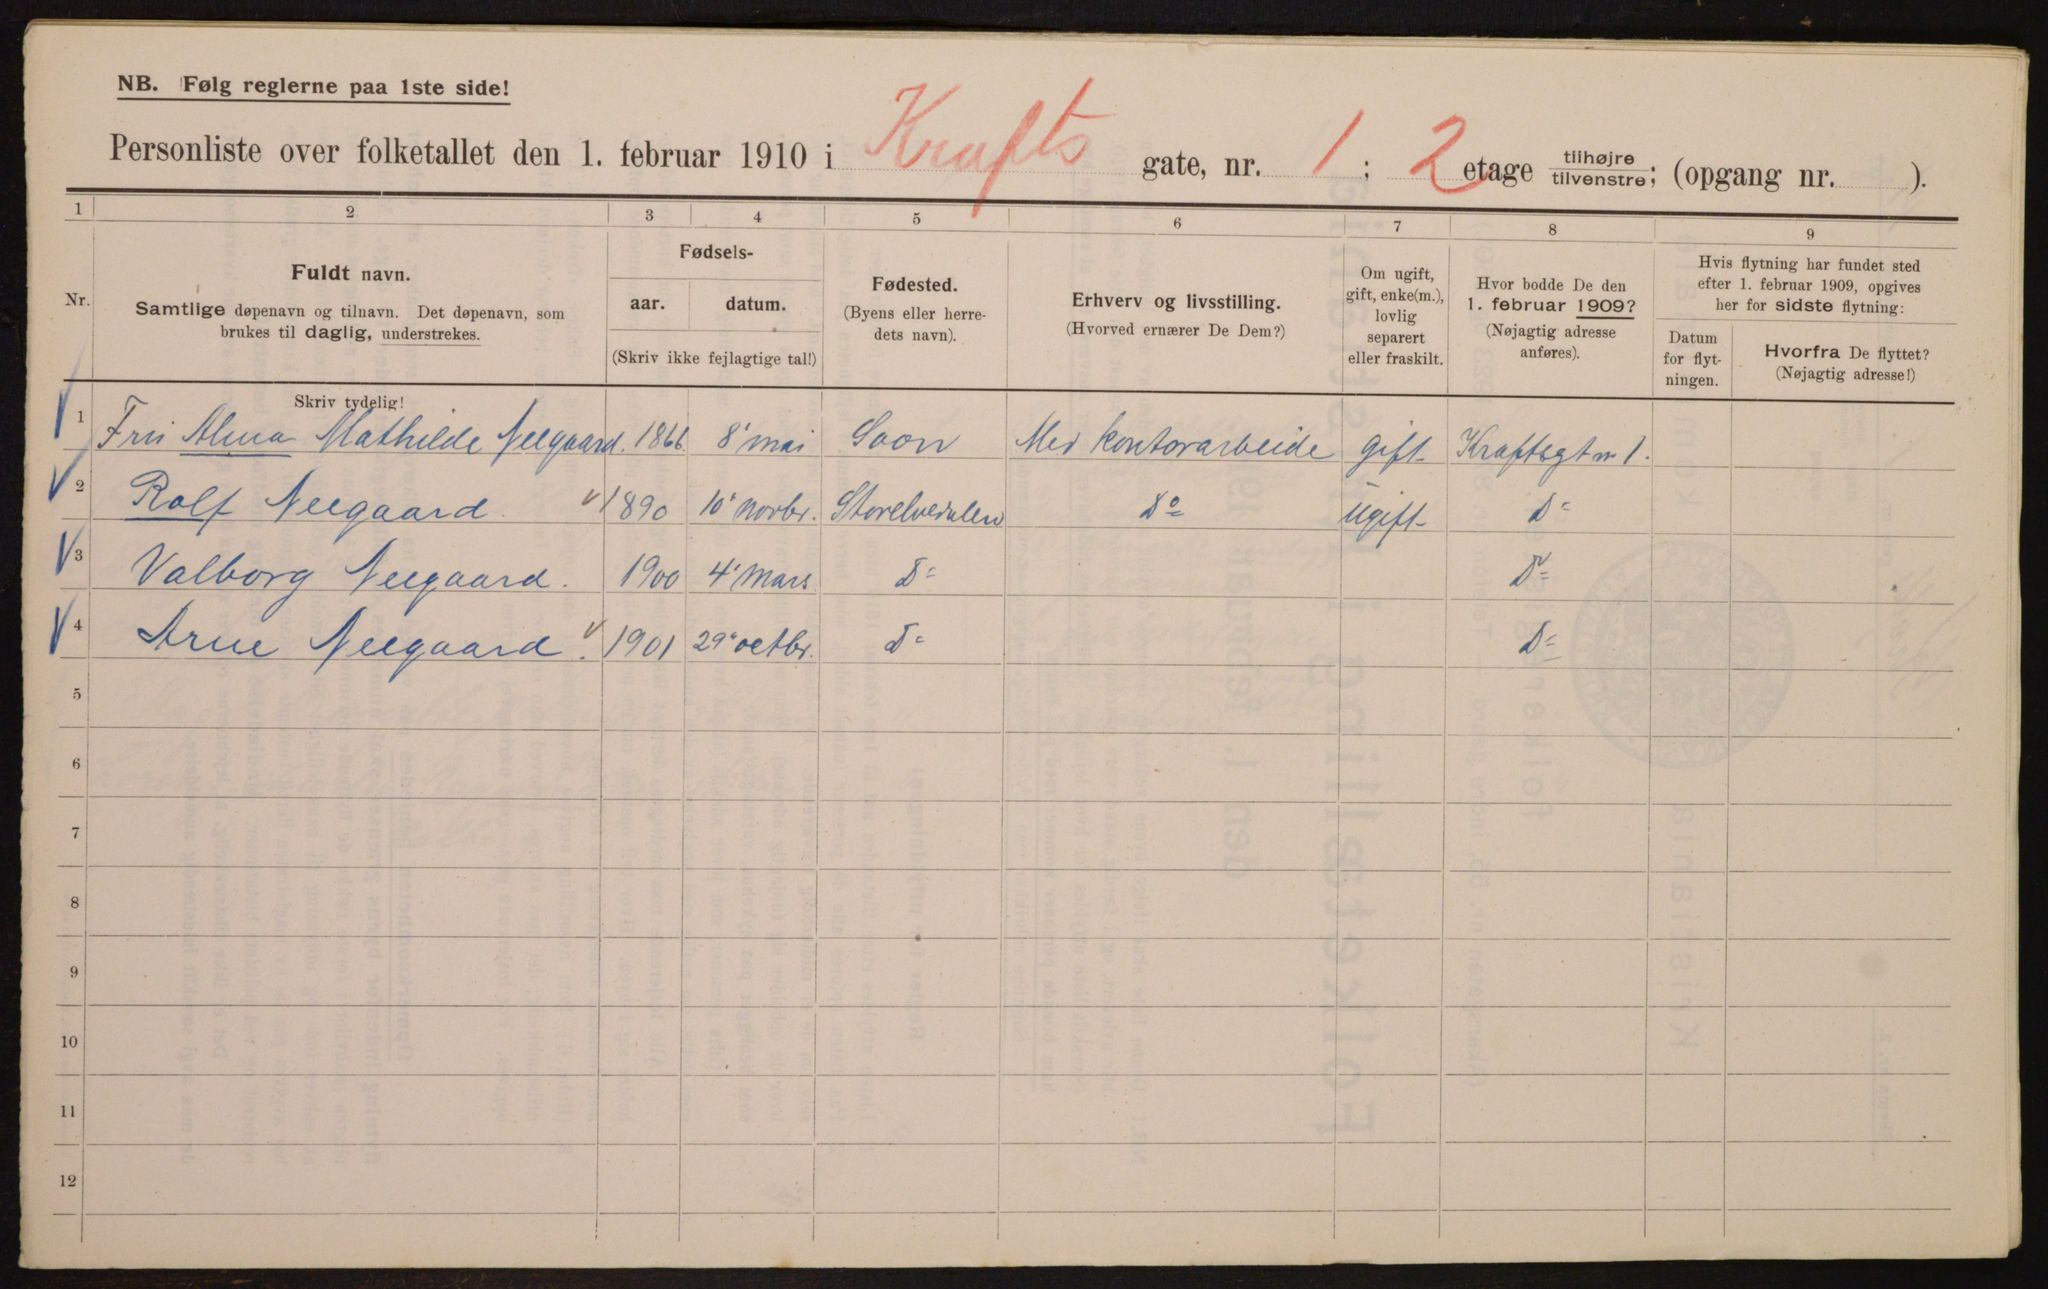 NB. Følg reglerne paa 1ste side!
Personliste over folketallet den 1. februar 1910 i Krafts gate, nr. 1 ; 2 etage tilhøjre tilvenstre; (opgang nr. ).
1 2 3 4 5 6 7 8 9
Nr.
Fuldt navn.
Samtlige døpenavn og tilnavn. Det døpenavn, som
brukes til daglig, understrekes.
Skriv tydelig!
Fødsels-
aar. datum.
(Skriv ikke fejlagtige tal!)
Fødested.
(Byens eller herre-
dets navn).
Erhverv og livsstilling.
(Hvorved ernærer De Dem?)
Om ugift,
gift, enke(m.),
lovlig
separert
eller fraskilt.
Hvor bodde De den
1. februar 1909?
(Nøjagtig adresse
anføres).
Hvis flytning har fundet sted
efter 1. februar 1909, opgives
her for sidste flytning:
Datum
for flyt-
ningen.
Hvorfra De flyttet?
(Nøjagtig adresse!)
1 Fru Alma Mathilde Neegaard. 1866 8' mai Soon Med kontorarbeide gift Kraftsgt nr 1.
2 Rolf Neegaard. 1890 10' novbr. Storelvedalen Do ugift D=
3 Valborg Neegaard. 1900 4' mars D= D=
4 Arne Neegaard. 1901 29' octbr. D= D=
5
6
7
8
9
10
11
12